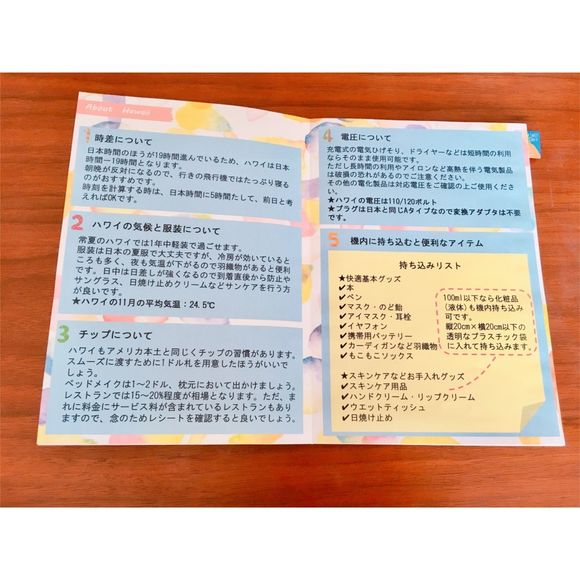 About Hawaii
1 時差について
日本時間のほうが19時間進んでいるため、ハワイは日本
時間ー19時間となります。
朝晩が反対になるので、行きの飛行機ではたっぷり寝る
のがおすすめです。
時刻を計算する時は、日本時間に5時間たして、前日と考
えればOKです。
2 ハワイの気候と服装について
常夏のハワイでは1年中軽装で過ごせます。
服装は日本の夏服で大丈夫ですが、冷房が効いていると
ころも多く、夜も気温が下がるので羽織物があると便利
です。日中は日差しが強くなるので到着直後から防止や
サングラス、日焼け止めクリームなどサンケアを行う方
が良いです。
★ハワイの11月の平均気温：24.5℃
3 チップについて
ハワイもアメリカ本土と同じくチップの習慣があります。
スムーズに渡すために1ドル札を用意したほうがいいで
しょう。
ベッドメイクは1～2ドル、枕元において出かけましょう。
レストランでは15～20%程度が相場となります。ただ、ま
れに料金にサービス料が含まれているレストランもあり
ますので、念のためレシートを確認すると良いでしょう。
4 電圧について
充電式の電気ひげそり、ドライヤーなどは短時間の利用
ならそのまま使用可能です。
ただし長時間の利用やアイロンなど高熱を伴う電気製品
は破損の恐れがあるのでご注意ください。
その他の電化製品は対応電圧をご確認の上ご使用くださ
い。
★ハワイの電圧は110/120ボルト
★プラグは日本と同じAタイプなので変換アダプタは不要
です。
5 機内に持ち込むと便利なアイテム
持ち込みリスト
★快適基本グッズ
✔本
✔ペン
✔マスク・のど飴
✔アイマスク・耳栓
✔イヤフォン
✔携帯用バッテリー
✔カーディガンなど羽織物
✔もこもこソックス
★スキンケアなどお手入れグッズ
✔スキンケア用品
✔ハンドクリーム・リップクリーム
✔ウエットティッシュ
✔日焼け止め
100ml以下なら化粧品
(液体)も機内持ち込み
可です。
縦20cm×横20cm以下の
透明なプラスチック袋
に入れて持ち込みます。